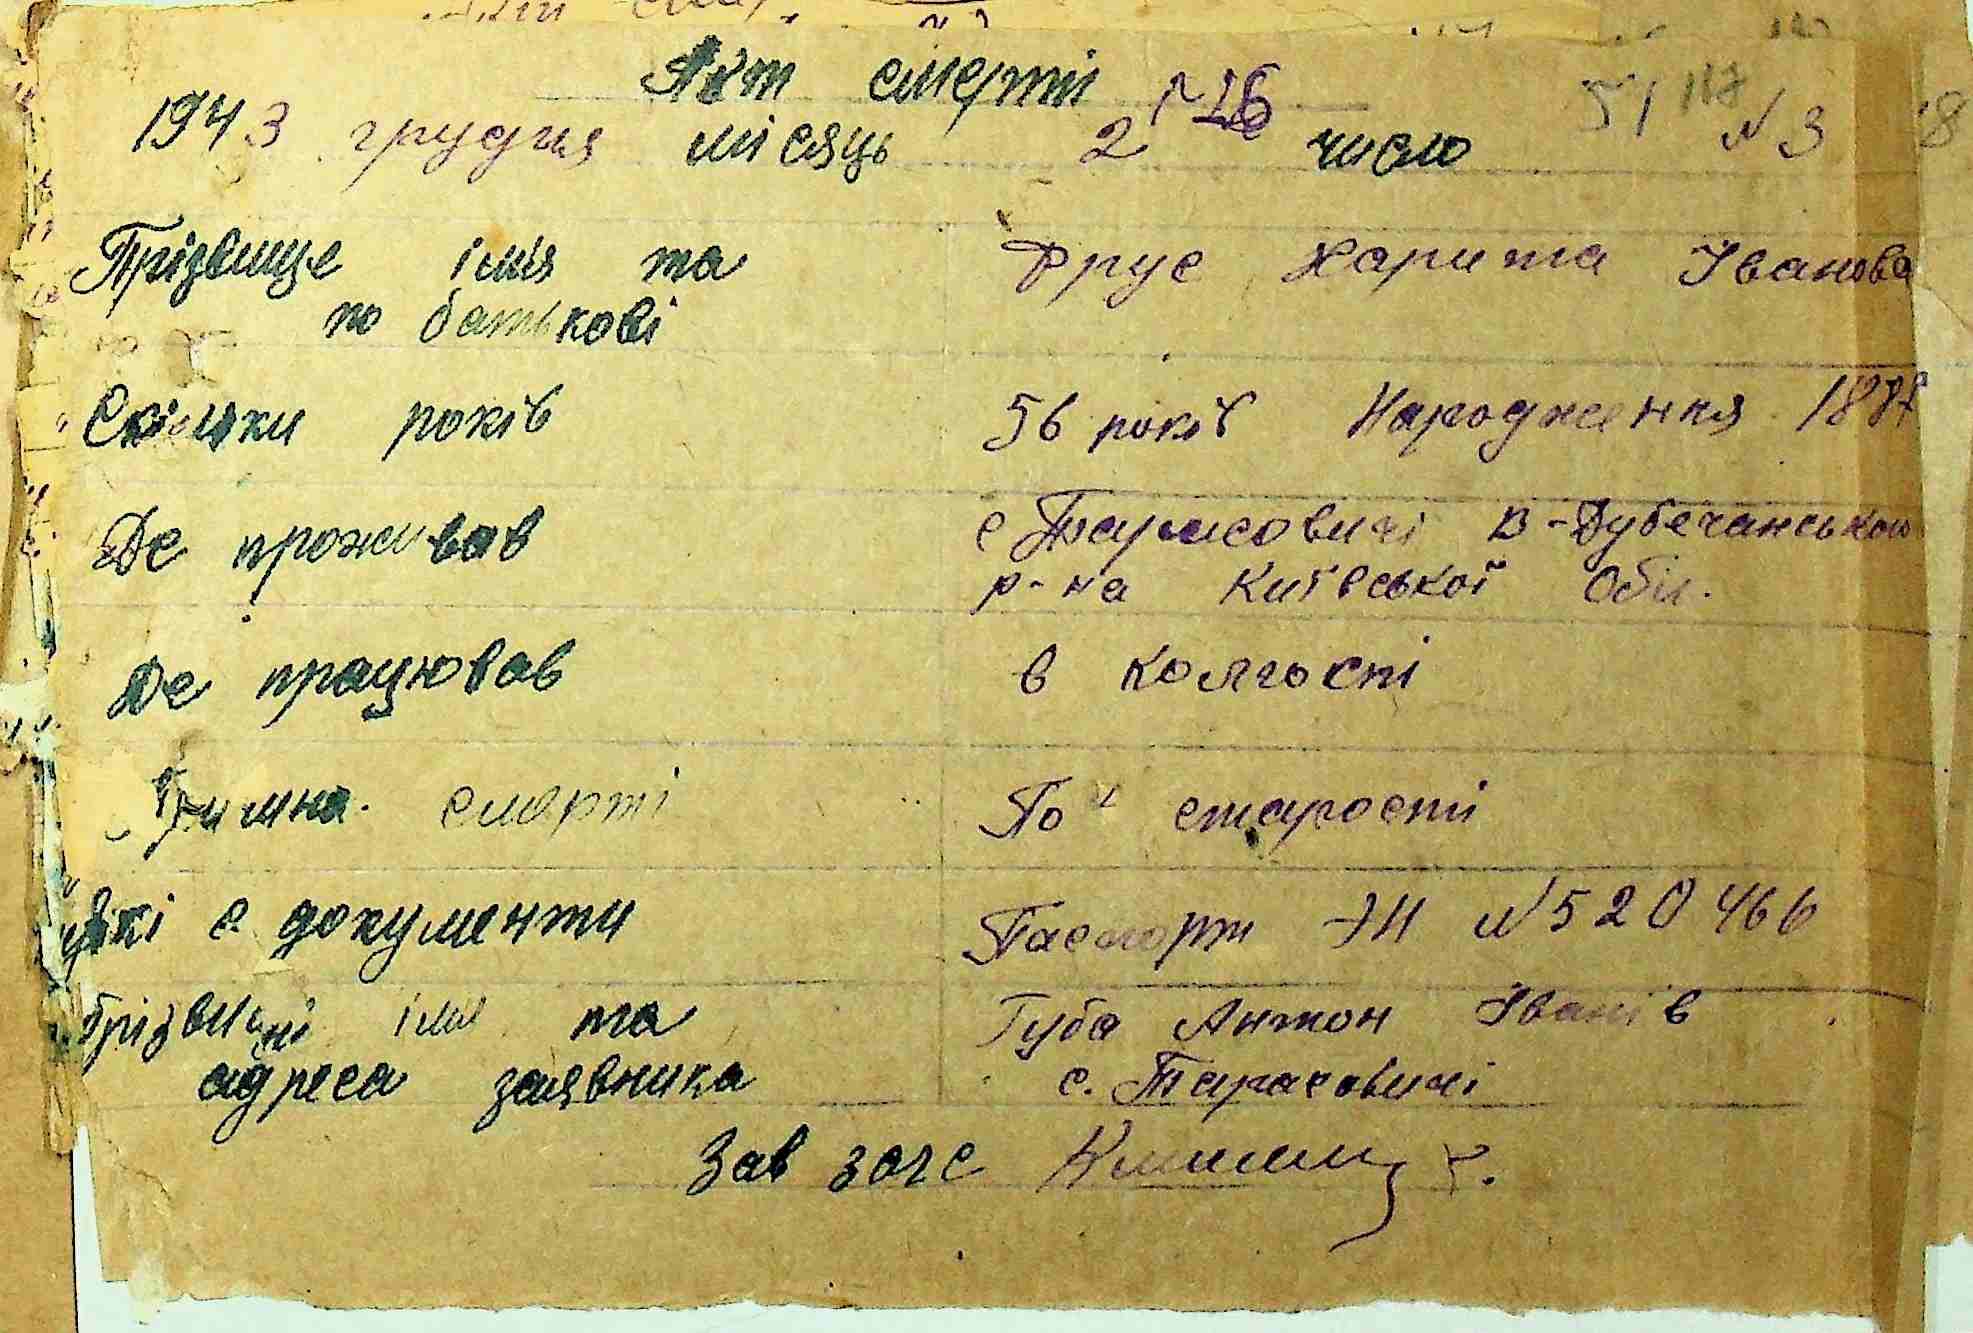 Акт смерті №26
1943 грудня місяць 2 число №3
51 117
Прізвище імя та Друс Харита Іванова
по батькові
Скільки років 56 років Народження 1887
Де проживав с Тарасовичі В-Дубечанського
р-на Київської Обл.
Де працював в колгоспі
Причина смерті По старості
Які є документи Паспорт ЭН №520466
Прізвище імя та Губа Антон Іванів
адреса заявника с. Тарасовичі
Зав загс